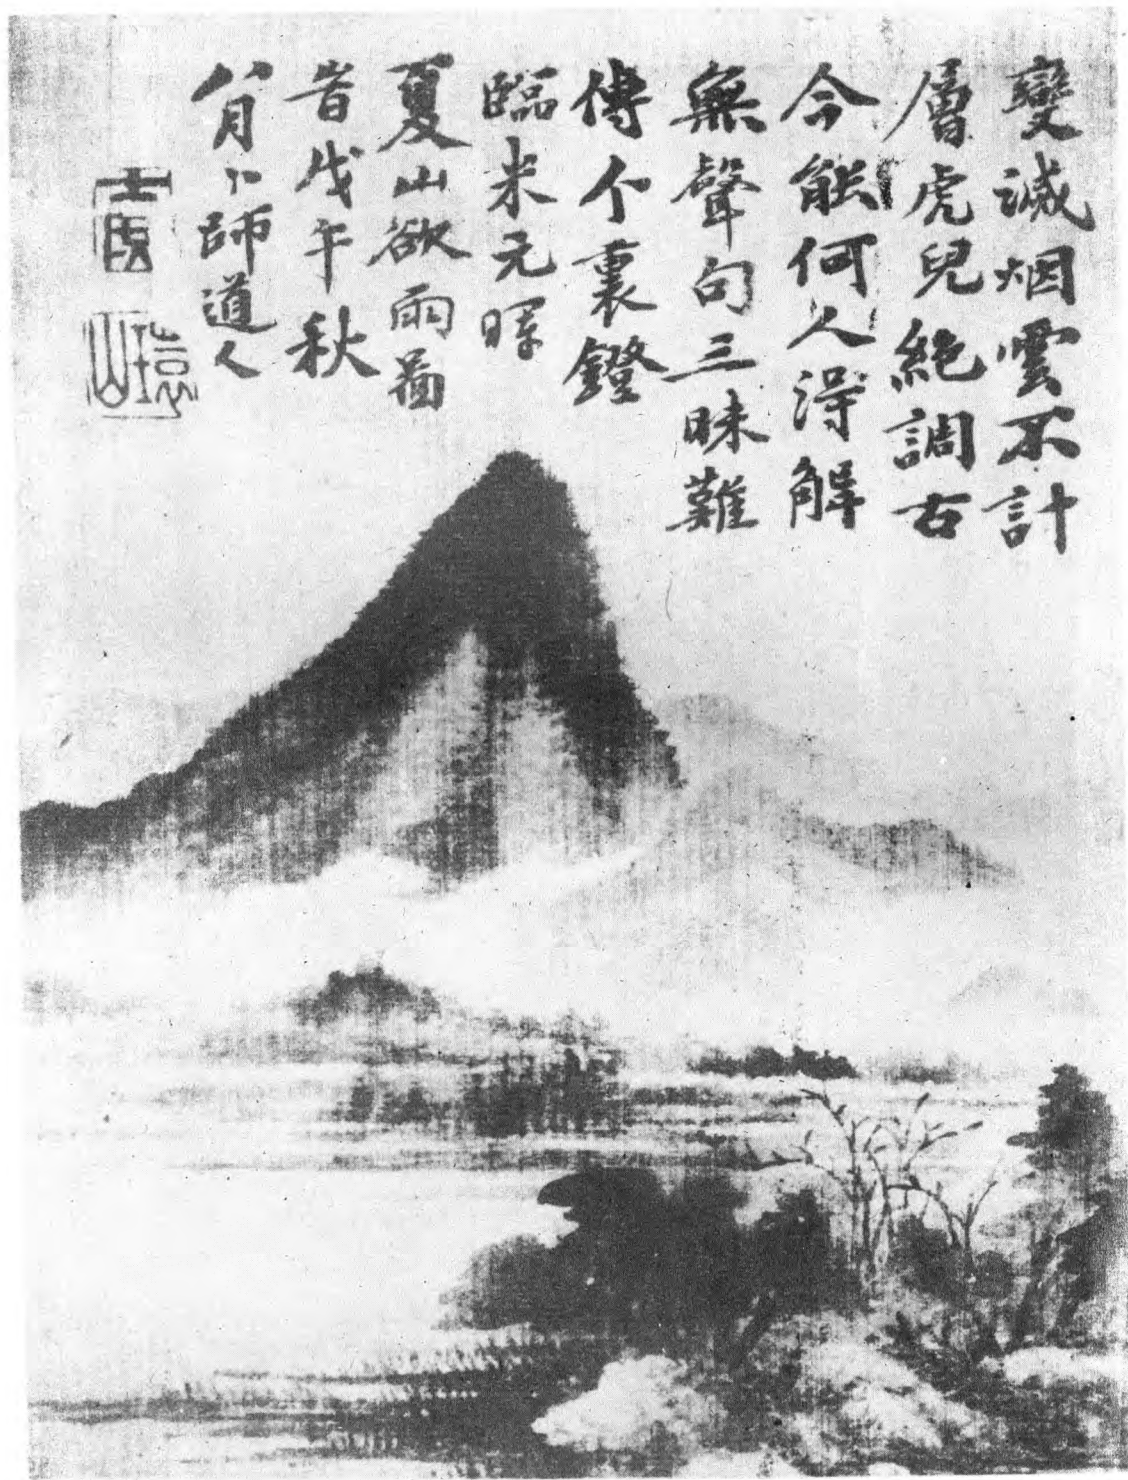 變滅烟雲不計
層虎兒絶調古
今能何人淂解
無聲句三昧難
傳个裏鐙
臨米元暉
夏山欲雨啚
旹戊午秋
八月師道人